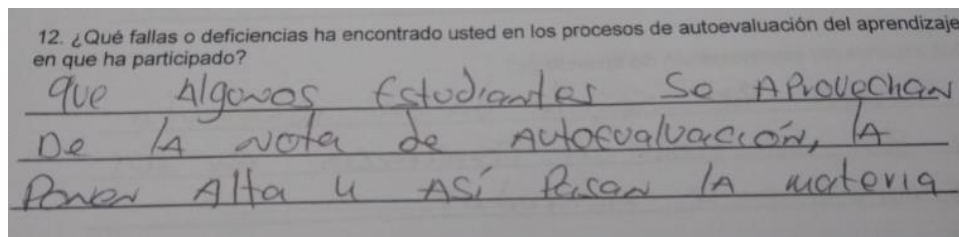 12. ¿Qué fallas o deficiencias ha encontrado usted en los procesos de autoevaluación del aprendizaje
en que ha participado?
que Algunos Estudiantes Se APROVechaN
De lA Nota de AUtoEvalUaCcióN, lA
PoneN Alta y ASí PasaN lA materia